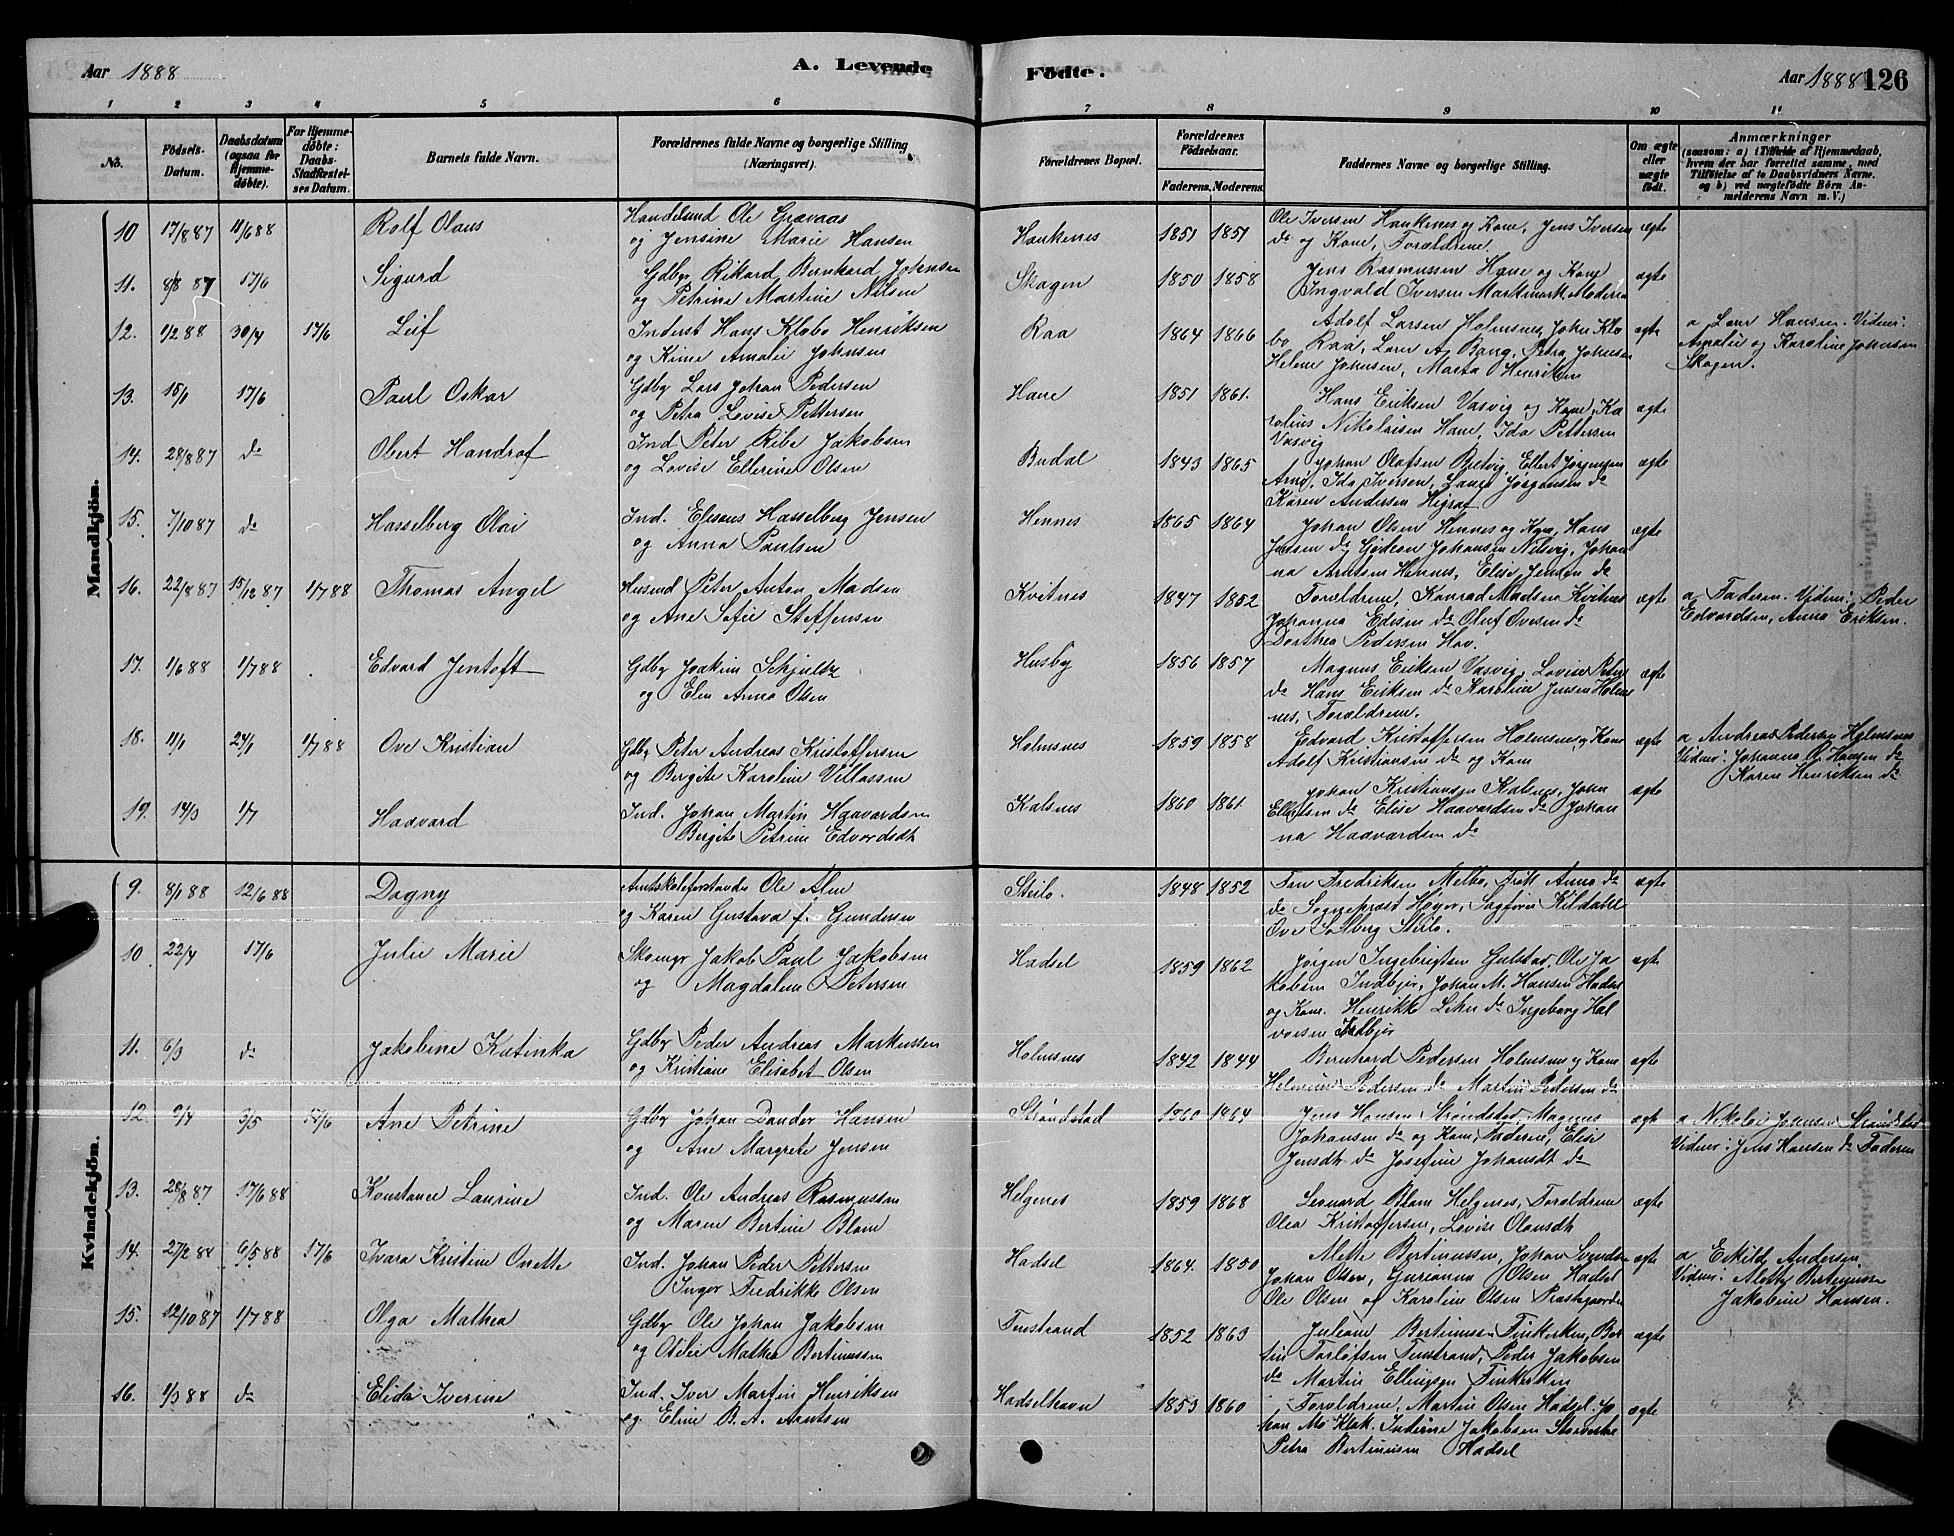 Aar 1888
A. Levende Födte.
Aar 1888 126
1 2 3 4 5 6 7 8 9 10 11
No.
Födsels-Datum.
Daabsdatum (ogsaa for Hjemmedöbte).
For Hjemmedöbte: Daabs-Stadfæstelses Datum.
Barnets fulde Navn.
Forældrenes fulde Navne og borgerlige Stilling (Næringsvei).
Forældrenes Bopæl.
Forældrenes Födselsaar.
Faderens. Moderens.
Faddernes Navne og borgerlige Stilling.
Om ægte eller uægte födt.
Anmærkninger
(saasom: a) i Tilfælde af Hjemmedaab, hvem der har forrettet samme, med Tilföielse af to Daabsvidners Navne. og b) ved uægtefödte Börn Anmelderens Navn m. V.)
Mandkjön.
10 17/8 87 11/6 88 Rolf Olaus Handelsmd Ole Gravaas Hankenes 1851 1851 Ole Iversen Hanknes og Kone, Jens Iversen ægte
og Jensine Marie Hansen do og Kone, Forældrene.
11. 8/8 87 17/6 Sigurd Gdbr Rikard Bernhard Johnsen Skagen 1850 1858 Jens Rasmussen Hane og Kone ægte
og Petrine Martine Nilsen Ingvald Iversen Markmark, Moderen
12. 1/2 88 30/4 17/6 Leif Inderst Hans Klæbo Henriksen Raa 1864 1866 Adolf Larsen Holmsnes, John Klæ ægte a Hansen. Vidner:
og Kine Amalie Johnsen bo Raa, A. Bang, Petra Johnsen Amalie og Karoline Johnsen
Helene Johnsen, Marta Henriksen Skagen.
13. 15/1 17/6 Paul Oskar Gdbr Lars Johan Pedersen Hane 1851 1861. Hans Eriksen Vasvig og Kone, Ka ægte
og Petra Lovise Pettersen rolius Nikolaisen Hane, Ida Pettersen
Vasvig
14. 28/8 87 do Obert Handraf Ind. Peter Ribe Jakobsen Budal 1843 1865 Johan Olafsen Bretvig, Ellert Jørgensen ægte
og Lovise Ellerine Olsen Arnø, Ida Iversen, Jørgensen do
Karen Andersen
15. 7/10 87 do Hasselberg Olai Ind. Eliseus Hasselberg Jensen Hennes 1865 1864 Johan Olsen Hennes og Kone, Hans ægte
og Anna Paulsen Jensen do Gideon Johansen Nilsvig, Johan
na Arntsen Hennes, Elise Jensen do
16. 22/8 87 15/12 87 1/7 88 Thomas Angel Husmd Peter Anton Madsen Kvitnes 1847 1852 Forældrene, Konrad Madsen Kvitnes ægte a Faderen. Vidner: Peder
og Ane Sofie Steffensen Johanna Edisen do Oluf Ovesen do Edvardsen, Anna Eriksen.
Dorthea Pedersen Hov.
17. 1/6 88 1/7 88 Edvard Jentoft Gdbr Joakim Schjultz Husby 1856 1857 Magnus Eriksen Vasvig, Lovise Peters ægte
og Elen Anna Olsen do Hans Eriksen do Karoline Jensen Holms
nes, Forældrene.
18. 11/1 24/1 1/7 88 Ove Kristian Gdbr Peter Andreas Kristoffersen Holmsnes 1859 1858 Edvard Kristoffersen Holmsnes og Kone ægte a Andreas Pedersen Holmsnes
og Bergite Karoline Villassen Adolf Kristiansen do og Kone Vidner: Johanna O. Hansen do
Karen Henriksen do
19. 14/3 1/7 Haavard Ind. Johan Martin Haavardsen Kalsnes 1860 1861. Johan Kristiansen Kalsnes, John ægte
Bergite Petrine Edvardsdt Ellertsen do Elise Haavardsen do Johan
na Haavardsen do
Kvindekjön.
9. 8/1 88 12/6 88 Dagny Amtskoleforstander Ole Alm Steilo. 1848 1852 Fru Fredriksen Melbo, Frøk. Anna do ægte
og Karen Gustava f. Gundersen do Sogneprest Høyer, Sagfører Kildahl
Ove Solberg Steilo.
10 22/4 17/6 Julie Marie Skomgr Jakob Paul Jakobsen Hadsel 1859 1862 Jørgen Ingebrigtsen Gulstad, Ole Ja ægte
og Magdalene Petersen kobsen Indbjor, Johan M. Hansen Hadsel
og Kone. Henrikke Lehn do Ingeborg Hal
vorsen Indbjor
11. 6/3 do Jakobine Katinka Gdbr Peder Andreas Markussen Holmsnes 1842 1844 Bernhard Pedersen Holmsnes og Kone ægte
og Kristiane Elisabet Olsen Pedersen do Martin Pedersen do
12. 9/4 3/5 17/6 Ane Petrine Gdbr Johan Dander Hansen Strøndstad 1860 1864 Jens Hansen Strøndstad, Magnus ægte a Nikolai Johnsen Strøndstad
og Ane Margrete Jensen Johansen do og Kone, Faderen, Elise Vidner: Jens Hansen do Faderen
Jensdt do Josefine Johansdt do
13. 28/8 87 17/6 88 Konstance Laurine Ind. Ole Andreas Rasmussen Helgenes 1859 1868 Leonard Blam Helgenes, Forældrene ægte
og Maren Bertine Blam Olea Kristoffersen, Lovise Olausdt
14. 27/2 88 6/5 88 17/6 Ivara Kristine Onette Ind. Johan Peder Pettersen Hadsel 1864. 1850 Mette Bertinussen, Johan Svendsen ægte a Eskild Andersen.
Inger Fredrikke Olsen Johan Olsen, Gureanna Olsen Hadsel Vidner: Bertinussen
Ole Olsen og Karoline Olsen Prestegaarden Jakobine Hansen.
15. 12/10 87 1/7 88 Olga Mathea Gdbr Ole Johan Jakobsen Finstrand 1852 1863 Juliane Bertinussen Finkerken, Ber ægte
og Otilie Mathea Bertinussen tin Torlofsen Finstrand, Peder Jakobsen
do Martin Ellingsen Finkerken
16. 1/3 88 do Elida Iverine Ind. Iver Martin Henriksen Hadselhavn 1853 1860 Forældrene, Martin Olsen Hadsel. Jo ægte
og Eline B. A. Arntsen han Mo Klak. Inderine Jakobsen
Petra Bertinusen Hadsel